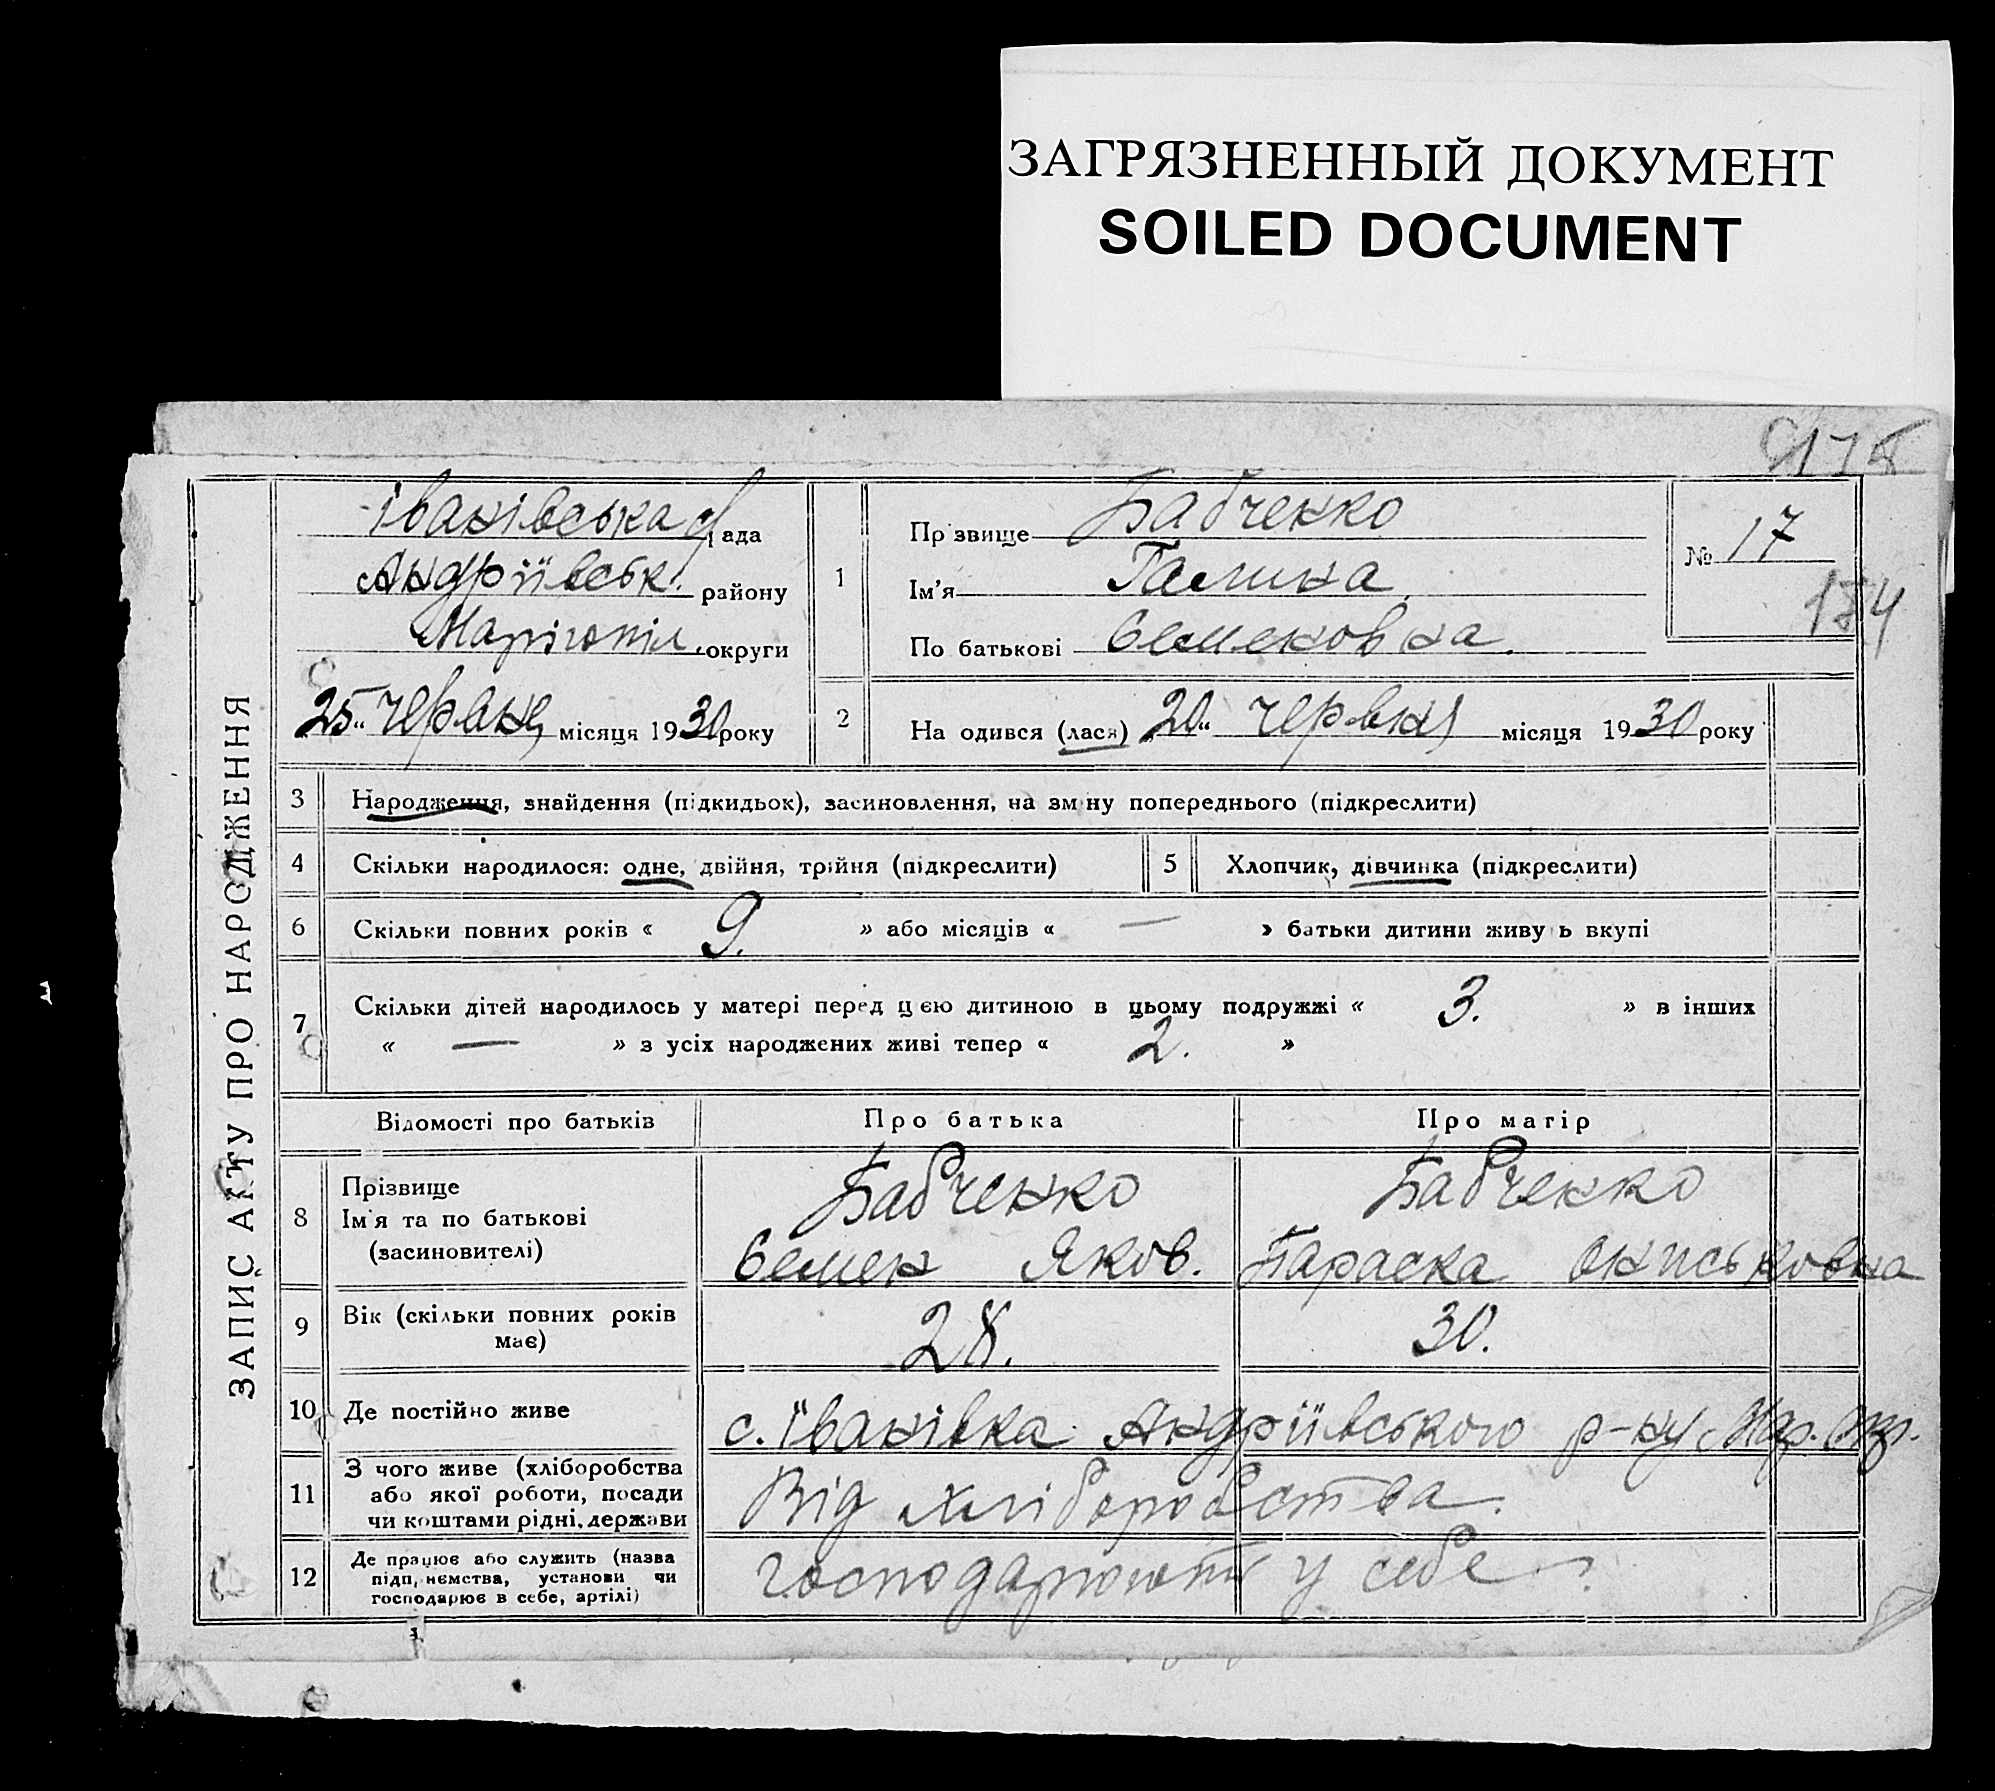 ЗАГРЯЗНЕННЫЙ ДОКУМЕНТ
SOILED DOCUMENT
ЗАПИС АКТУ ПРО НАРОДЖЕННЯ
Іванівська рада
Андріївськ. району
Маріюпіл. округи
„25“ червня місяця 1930 року
1
Прізвище Бабченко
Ім'я Галина
По батькові Семеновна.
№ 17
174
2
На одився (лася) „20“ червня місяця 1930 року
3 Народження, знайдення (підкидьок), засиновлення, на зміну попереднього (підкреслити)
4 Скільки народилося: одне, двійня, трійня (підкреслити)
5 Хлопчик, дівчинка (підкреслити)
6 Скільки повних років « 9. » або місяців « — » батьки дитини живуть вкупі
7 Скільки дітей народилось у матері перед цією дитиною в цьому подружжі « 3. » в інших
« — » з усіх народжених живі тепер « 2. »
Відомості про батьків Про батька Про матір
8 Прізвище
Ім'я та по батькові
(засиновителі)
Бабченко
Семен Яков.
Бабченко
Параска
9 Вік (скільки повних років
має)
28. 30.
10 Де постійно живе с. Іванівка Андріївського р-ну Мар. Окр.
11 З чого живе (хліборобства
або якої роботи, посади
чи коштами рідні, держави
Від хліборобства.
12 Де працює або служить (назва
підприємства, установи чи
господарює в себе, артілі)
господарюють у себе.